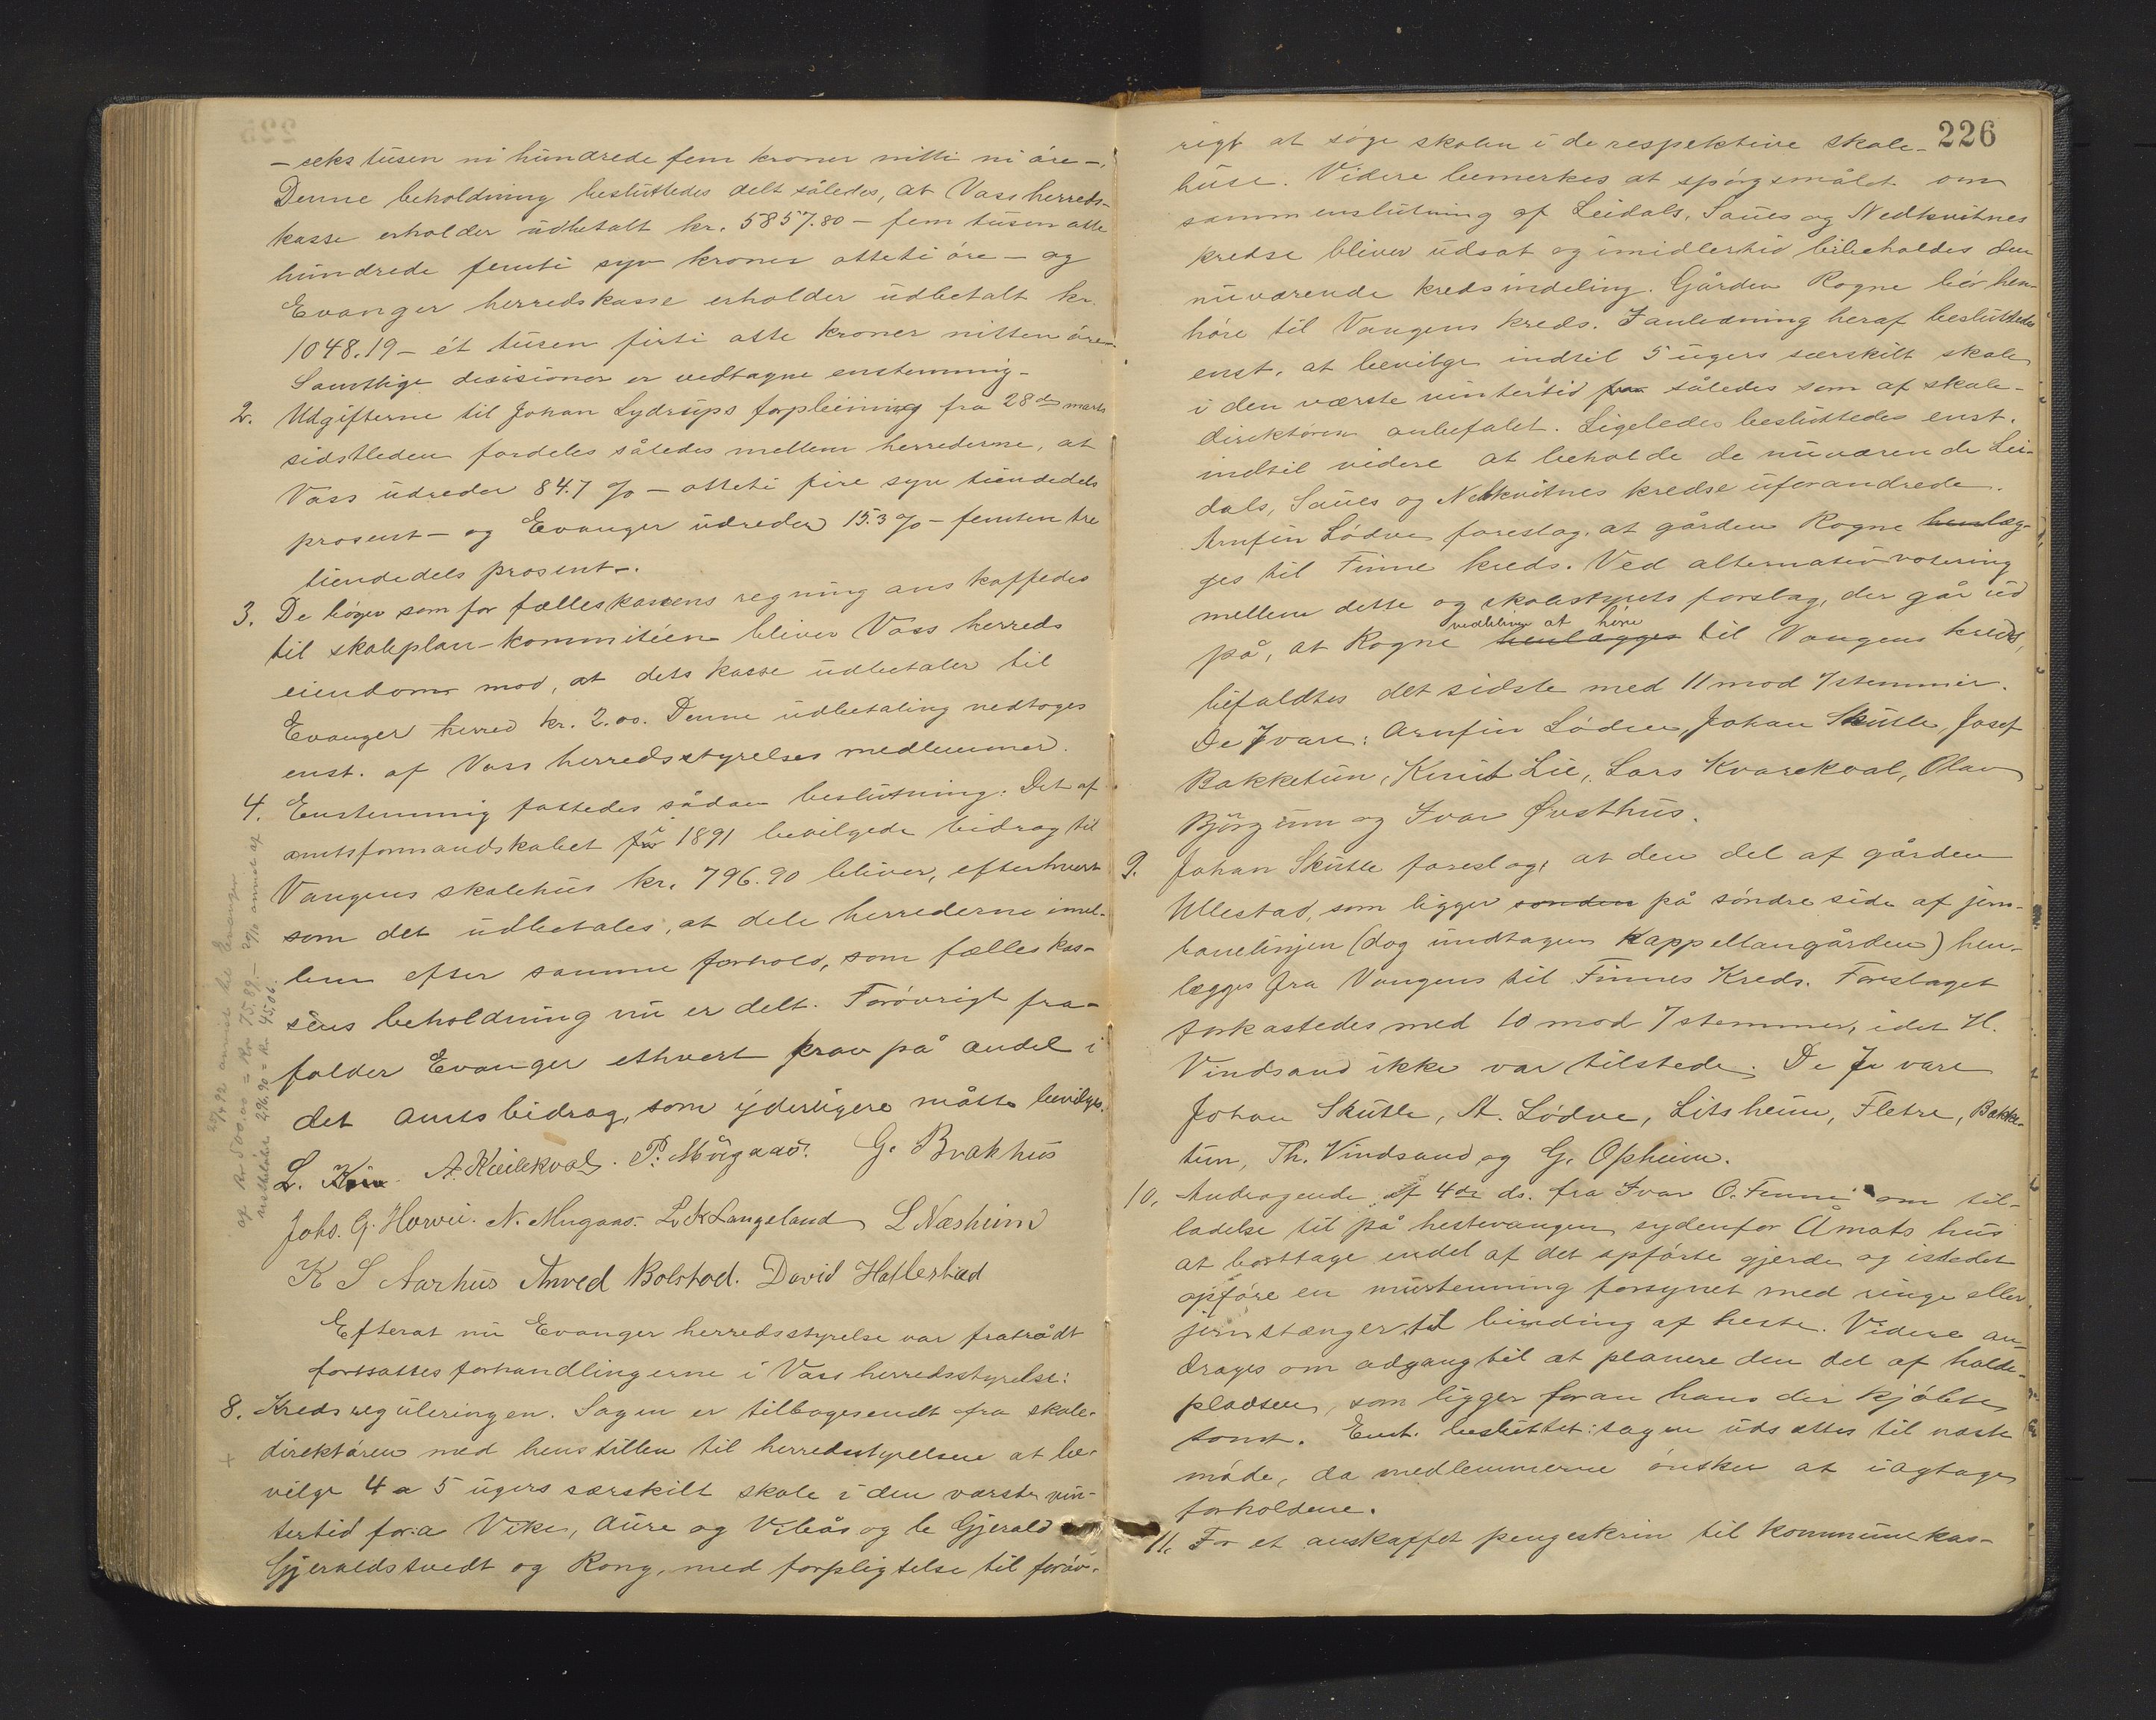 — seks tusen ni hundrede fem kroner nitti ni øre —,
Denne beholdning besluttedes delt således, at Vass herreds-
kasse erholder udbetalt kr. 5857.80 — fem tusen otte
hundrede femti syv kroner otteti øre — og
Evanger herredskasse erholder udbetalt kr.
1048.19 — ét tusen firti otte kroner nitten øre.
Samtlige desisioner er vedtagne enstemmig.
2. Udgifterne til Johan Lydrups forpleining fra 28de marts
sidstleden fordeles således mellem herrederne, at
Vass udreder 84.7 % — otteti fire syv tiendedels
prosent — og Evanger udreder 15.3 % — femten tre
tiendedels prosent —.
3. De bøger som for fælleskassens regning anskaffedes
til skoleplan-kommiteen bliver Vass herreds
eiendom mod, at dets kasse udbetaler til
Evanger herred kr. 2.00. Denne udbetaling vedtoges
enst. af Vass herredsstyrelses medlemmer.
4. Enstemmig fattedes sådan beslutning: Det af
amtsformandskabet for 1891 bevilgede bidrag til
Vangens skolehus kr. 796.90 bliver, efterhvert
som det udbetales, at dele herrederne imel-
lem efter samme forhold, som fælleskas-
sens beholdning nu er delt. Forøvrigt fra-
falder Evanger ethvert krav på andel i
det amtsbidrag, som yderligere måtte bevilges.
L. A. Kvilekval. P. Mugaas. G. Brakhus
Johs. G. Horvei. N. Mugaas. L K Langeland L Næsheim
K S Aarhus Anved Bolstad. David Hallestad
Efterat nu Evanger herredsstyrelse var fratrådt
fortsattes forhandlingerne i Vass herredsstyrelse:
8. Kredsreguleringen. Sagen er tilbagesendt fra skole-
direktøren med henstillen til herredsstyrelsen at be-
vilge 4 a 5 ugers særskilt skole i den værste vin-
tertid for: a Vike, Aure og Vibås og b Gjerald
Gjeraldstvedt og Rong, med forpligtelse til forøv-
226
rigt at søge skolen i de respektive skole-
huse. Videre bemerkes at spørgsmålet om
sammenslutning af Leidals, Saues og Nedkvitnes
kredse bliver udsat og imidlertid bibeholdes den
nuværende kredsindeling. Gården Rogne bør hen-
høre til Vangens kreds. I anledning heraf besluttedes
enst. at bevilge indtil 5 ugers særskilt skole
i den værste vintertid således som af skole-
direktøren anbefalet. Ligeledes besluttedes enst.
indtil videre at beholde de nuværende Lei-
dals, Saues og Nedkvitnes kredse uforandrede.
Arnfin Lødve foreslog, at gården Rogne henlæg-
ges til Finne kreds. Ved alternativ votering
mellem dette og skolestyrets forslag, der går ud
vedbliver at høre
på, at Rogne henlægges til Vangens kreds,
bifaldtes det sidste med 11 mod 7 stemmer.
De 7 vare: Arnfin Lødve, Johan Skutle, Josef
Bakketun, Knut Lie, Lars Kvarekval, Olav
Bjørgum og Ivar Øvsthus.
9. Johan Skutle foreslog, at den del af gården
Ullestad, som ligger sønden på søndre side af jern-
banelinjen (dog undtagen Kappellangården) hen-
lægges fra Vangens til Finnes Kreds. Forslaget
forkastedes med 10 mod 7 stemmer, idet H.
Vindsand ikke var tilstede. De 7 vare
Johan Skutle, A. Lødve, Litsheim, Fletre, Bakke-
tun, Th. Vindsand og G. Opheim.
10. Andragende af 4de ds. fra Ivar O. Finne om til-
ladelse til på hestevangen sydenfor Åmots hus
at borttage endel af det opførte gjerde og istedet
opføre en murstenning forsynet med ringe eller
jernstænger til binding af heste. Videre an-
drages om adgang til at planere den del af holde-
pladsen, som ligger foran hans der kjøbte
tomt. Enst. besluttet: sagen udsættes til næste
møde, da medlemmerne ønsker at iagtage
forholdene.
11. For et anskaffet pengeskrin til kommunekas-